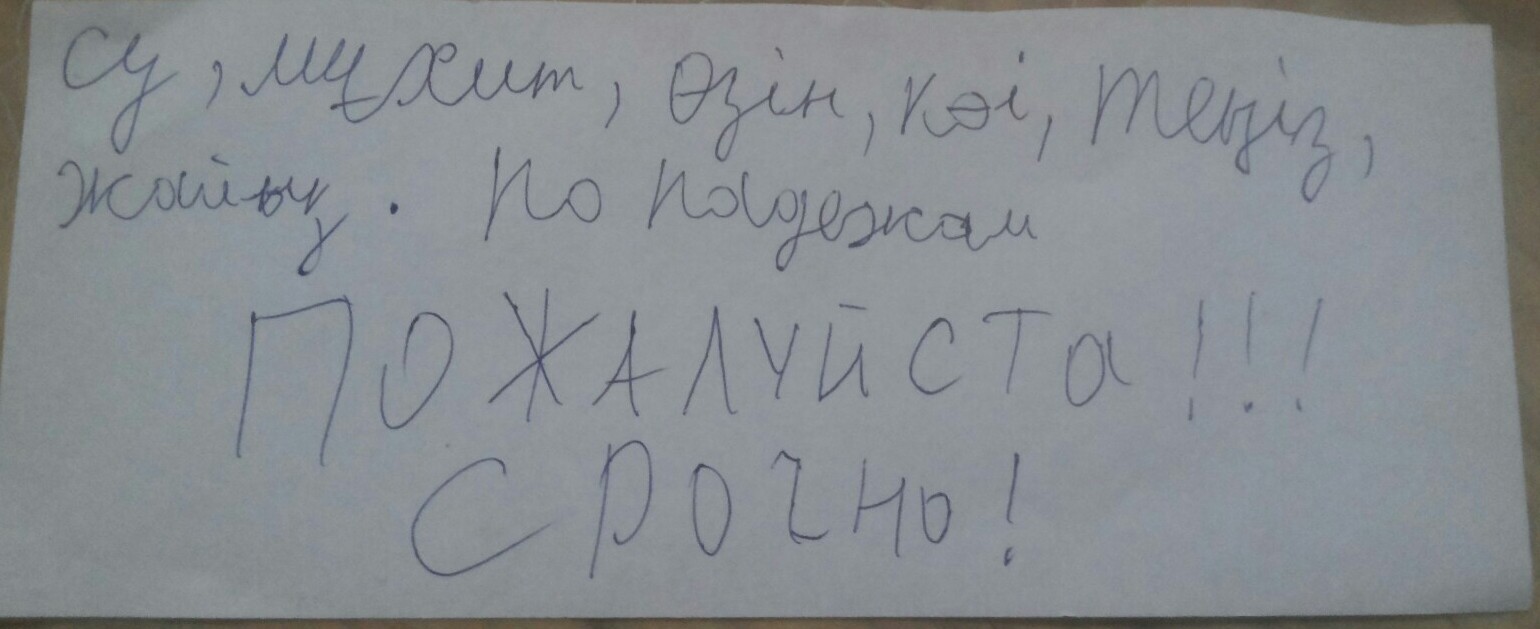 Су, мұхит, өзін, көі, теңіз,
жайық. По падежам
ПОЖАЛУЙСТа!!!
СРОЧНО!